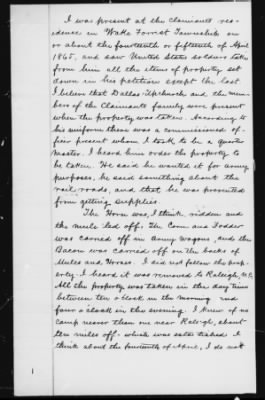 I was present at the claimants res-
idence in Wake Forrest Township on
or about the fourteenth or fifteenth of April
1865, and saw United States soldiers take
from him all the items of property set
down in his petition except the last
I believe that Dallas Upchurch and the mem-
bers of the Claimants family were present
when the property was taken. According to
his uniform there was a commissioned of-
ficer present whom I took to be a quarter
master. I heard him order the property to
be taken. He said he wanted it for army
purposes, he said something about the
rail roads, and that he was prevented
from getting supplies.
The Horse was, I think ridden and
the mule led off. The Corn and Fodder
was carried off in Army wagons, and the
Bacon was carried off on the backs of
Mules and Horses. I did not follow the prop-
erty. I heard it was removed to Raleigh, N.C.
All the property was taken in the day time
between ten o clock in the morning and
four o clock in the evening. I knew of no
camp nearer than one near Raleigh, about
ten miles off. which was established I
think about the fourteenth of April, I do not